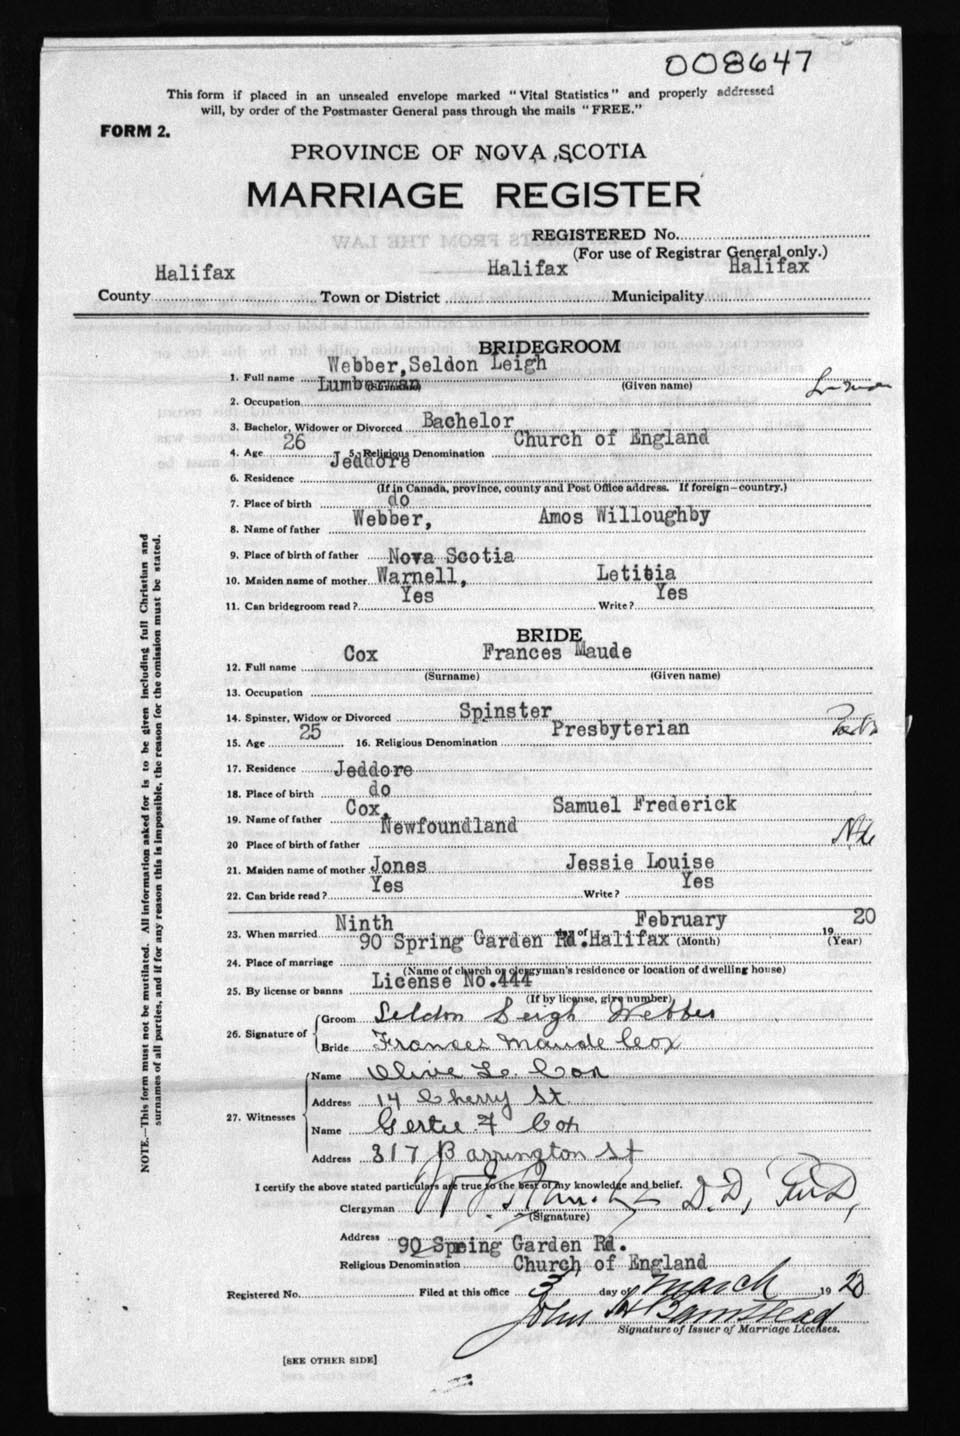 008647
This form if placed in an unsealed envelope marked "Vital Statistics" and properly addressed
will, by order of the Postmaster General pass through the mails "FREE."
FORM 2.
PROVINCE OF NOVA SCOTIA
MARRIAGE REGISTER
REGISTERED No.
(For use of Registrar General only.)
County Halifax Town or District Halifax Municipality Halifax
BRIDEGROOM
1. Full name Webber, Seldon Leigh
(Given name)
2. Occupation Lumberman
3. Bachelor, Widower or Divorced Bachelor
4. Age 26 5. Religious Denomination Church of England
6. Residence Jeddore
(If in Canada, province, county and Post Office address. If foreign—country.)
7. Place of birth do
8. Name of father Webber, Amos Willoughby
9. Place of birth of father Nova Scotia
10. Maiden name of mother Warnell, Letitia
11. Can bridegroom read? Yes Write? Yes
BRIDE
12. Full name Cox Frances Maude
(Surname) (Given name)
13. Occupation
14. Spinster, Widow or Divorced Spinster
15. Age 25 16. Religious Denomination Presbyterian
17. Residence Jeddore
18. Place of birth do
19. Name of father Cox, Samuel Frederick
20 Place of birth of father Newfoundland
21. Maiden name of mother Jones Jessie Louise
22. Can bride read? Yes Write? Yes
23. When married Ninth of February 19 20
(Month) (Year)
24. Place of marriage 90 Spring Garden Rd. Halifax
(Name of church or clergyman's residence or location of dwelling house)
25. By license or banns License No. 444
(If by license, give number)
26. Signature of
Groom Seldon Leigh Webber
Bride Frances Maude Cox
27. Witnesses
Name Olive L. Cox
Address 14 Cherry St
Name Gertie F Cox
Address 317 Barrington St
I certify the above stated particulars are true to the best of my knowledge and belief.
Clergyman D.D,
(Signature)
Address 90 Spring Garden Rd.
Religious Denomination Church of England
Registered No. Filed at this office 3 day of March 19 20
John H Barnstead
Signature of Issuer of Marriage Licenses.
[SEE OTHER SIDE]
NOTE.—This form must not be mutilated. All information asked for is to be given including full Christian and
surnames of all parties, and if for any reason this is impossible, the reason for the omission must be stated.